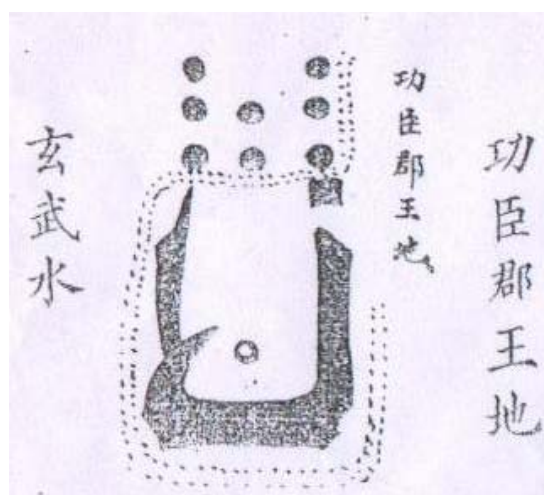 功臣郡王地
功臣郡王地
玄武水